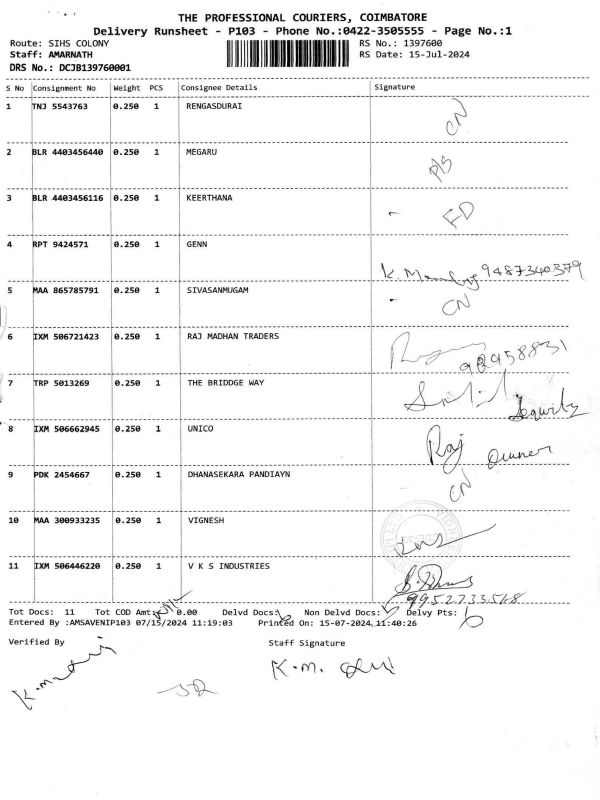 THE PROFESSIONAL COURIERS, COIMBATORE
Delivery Runsheet - P103 - Phone No.:0422-3505555 - Page No.:1
Route: SIHS COLONY RS No.: 1397600
Staff: AMARNATH RS Date: 15-Jul-2024
DRS No.: DCJB139760001
S No Consignment No Weight PCS Consignee Details Signature
1 TNJ 5543763 0.250 1 RENGASDURAI CN
2 BLR 4403456440 0.250 1 MEGARU
3 BLR 4403456116 0.250 1 KEERTHANA
4 RPT 9424571 0.250 1 GENN 9487340379
5 MAA 865785791 0.250 1 SIVASANMUGAM CN
6 IXM 506721423 0.250 1 RAJ MADHAN TRADERS
7 TRP 5013269 0.250 1 THE BRIDDGE WAY
8 IXM 506662945 0.250 1 UNICO Raj owner
9 PDK 2454667 0.250 1 DHANASEKARA PANDIAYN CN
10 MAA 300933235 0.250 1 VIGNESH
11 IXM 506446220 0.250 1 V K S INDUSTRIES
Tot Docs: 11 Tot COD Amt: 0.00 Delvd Docs: 6 Non Delvd Docs: 5 Delvy Pts: 6
Entered By :AMSAVENIP103 07/15/2024 11:19:03 Printed On: 15-07-2024, 11:40:26
Verified By Staff Signature
K.M.